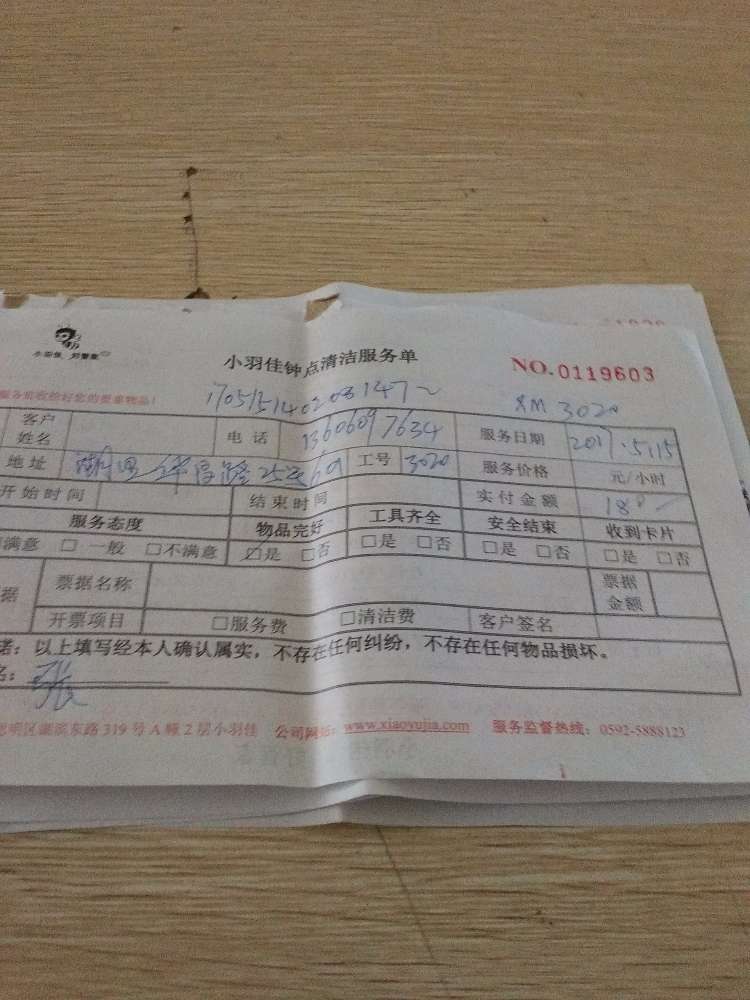 小羽佳 好管家
小羽佳钟点清洁服务单
NO.0119603
服务前收拾好您的贵重物品!
XM 3020
客户姓名 电话 13606097634 服务日期 2017.5.15
地址 25 609 工号 3020 服务价格 元/小时
开始时间 结束时间 实付金额 180
服务态度 物品完好 工具齐全 安全结束 收到卡片
满意 □一般 □不满意 ☑是 □否 □是 □否 □是 □否 □是 □否
据 票据名称 票据金额
开票项目 □服务费 □清洁费 客户签名
诺:以上填写经本人确认属实,不存在任何纠纷,不存在任何物品损坏。
名:张
思明区湖滨东路319号A幢2层小羽佳 公司网站:www.xiaoyujia.com 服务监督热线:0592-5888123